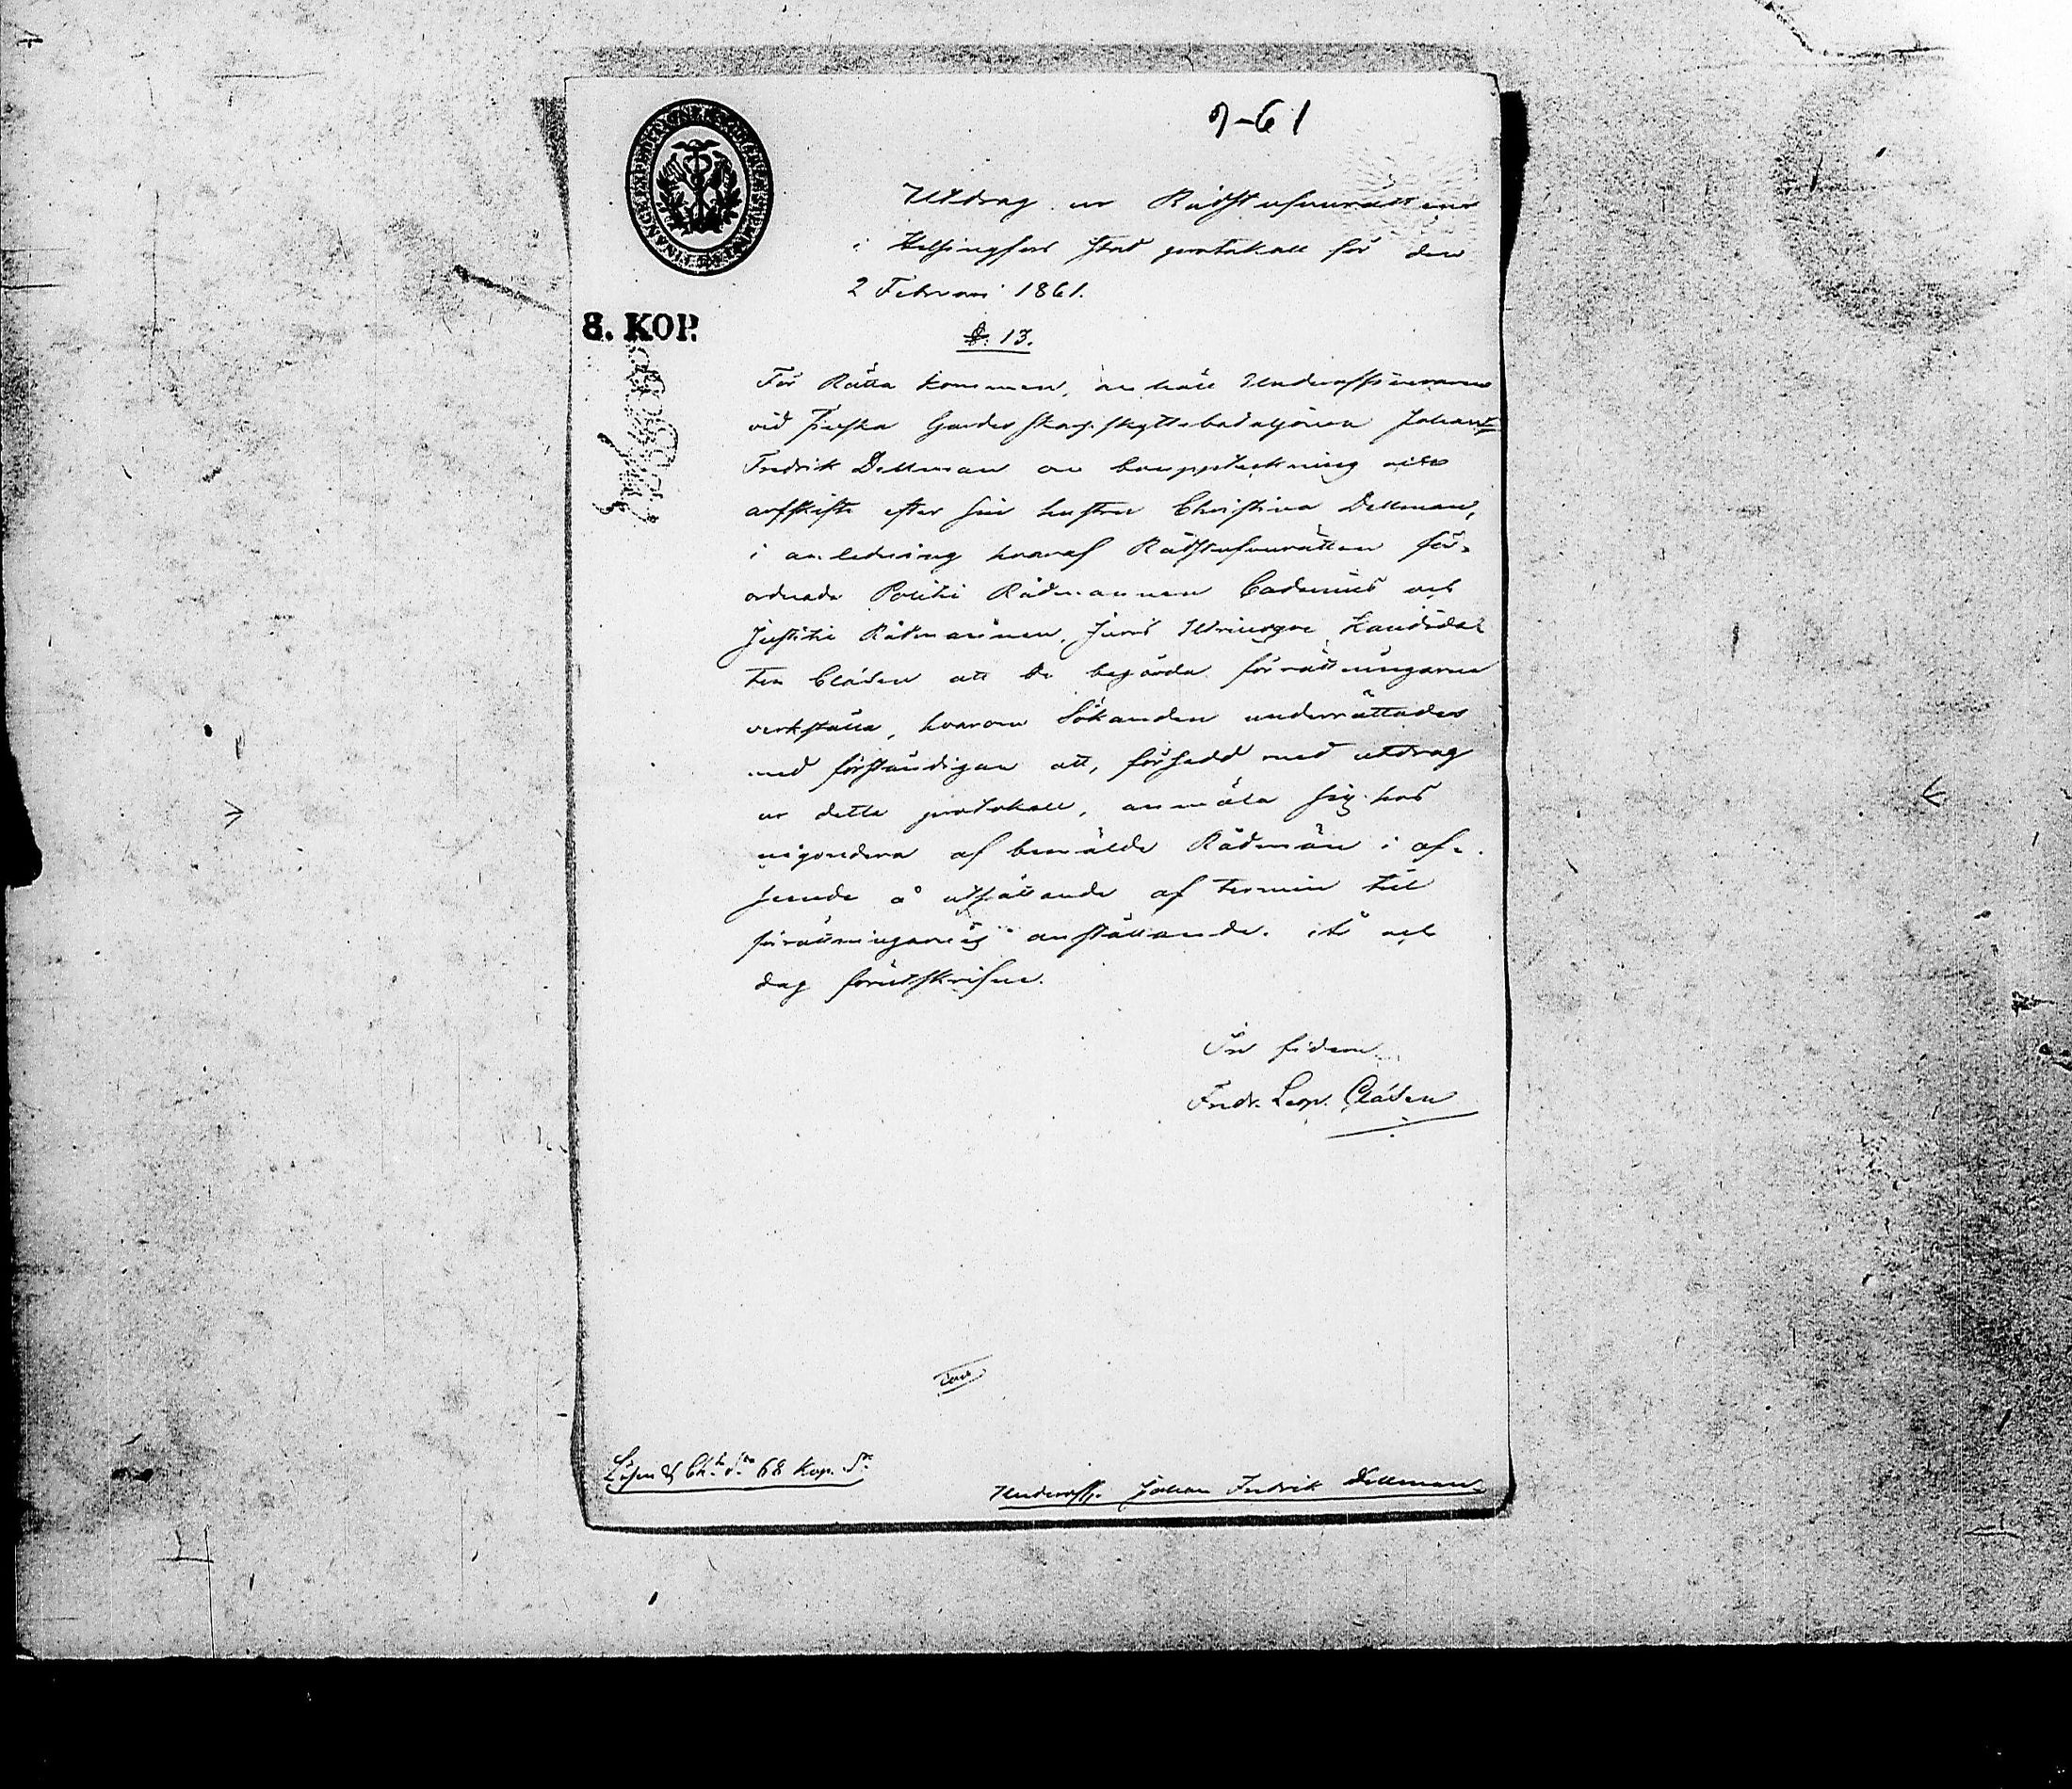 9-61
Utdrag ur Rådstufvurättens
i Helsingfors stad protokoll för den
2 Februari 1861.
8. KOP.
§. 13.
För Rätta kommen, anhöll Underofficeraren
vid Finska Gardes Skarpskyttebataljonen Johan
Fredrik Dellman om bouppteckning och
arfskifte efter sin hustru Christina Dellman,
i anledning hvaraf Rådstufvurätten för-
ordnade Politie Rådmannen Cadenius och
Justitie Rådmannen, Juris Utriusque Kandida-
ten Clásen att de begärda förrättningarne
verkställa, hvarom Sökanden underrättades
med förständigan att, försedd med utdrag
ur detta protokoll, anmäla sig hos
någondera af bemälde Rådmän i af-
seende å utsättande af termin till
förrättningarnes anställande. År och
dag förutskrifne.
In fidem
Fredr. Leop. Clásen
Lösen & 68 Kop. Sr
Underoff. Johan Fredrik Dellman